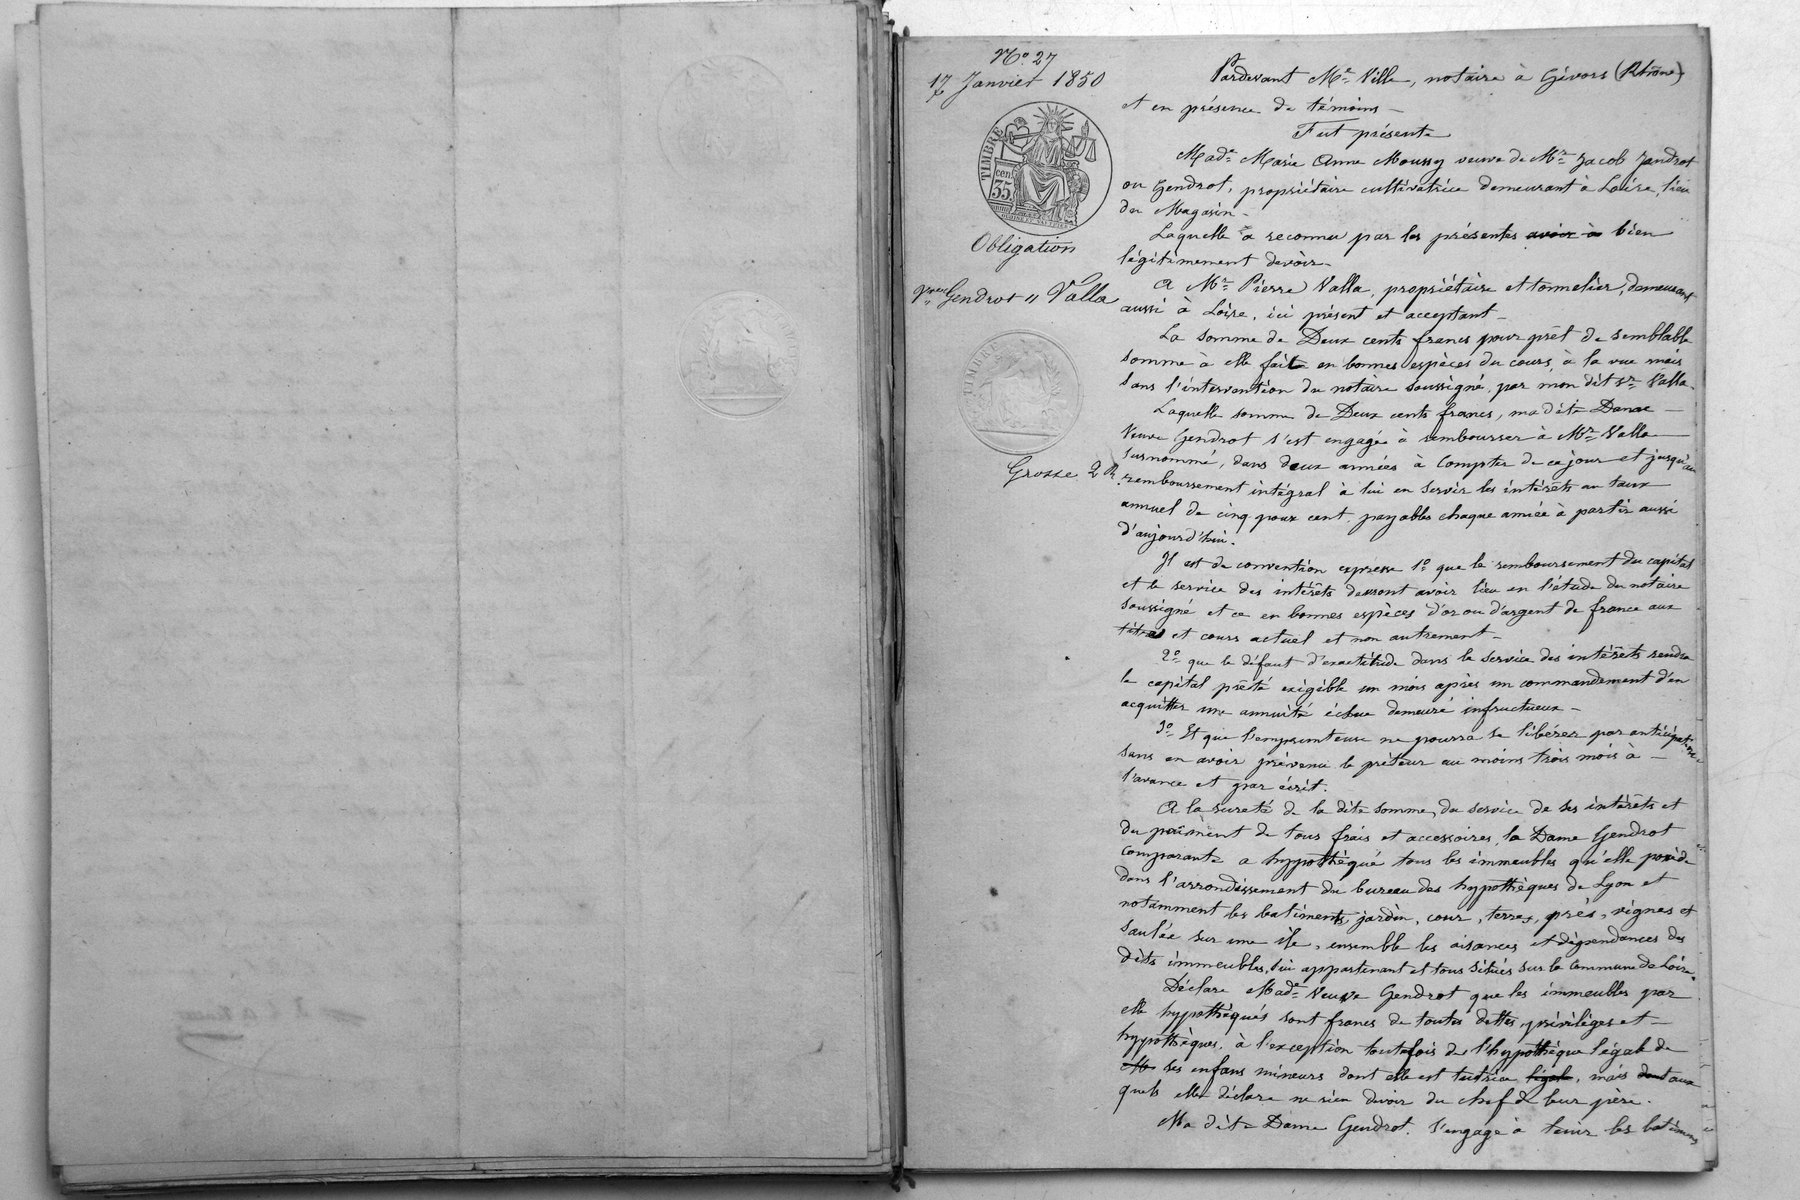 N° 27
17 Janvier 1850
TIMBRE
cen
35
Obligation
Vve Gendrot à Valla
TIMBRE
Grosse 2 R
Pardevant Me Ville, notaire à Givors (Rhône)
et en présence de témoins
Fut présente
Made Marie Anne Moussy veuve de Mr Jacob Jandrot
ou Gendrot, propriétaire cultivatrice demeurant à Loire, lieu
du Magasin
Laquelle a reconnu par les présentes avoir à bien
légitimement devoir
A Mr Pierre Valla, propriétaire et tonnelier, demeurant
aussi à Loire, ici présent et acceptant
La somme de Deux cents francs pour prêt de semblable
somme à elle fait en bonnes espèces du cours, à la vue mais
sans l'intervention du notaire soussigné, par mon dit sr Valla.
Laquelle somme de Deux cents francs, ma dite Dame
Veuve Gendrot s'est engagée à rembourser à Mr Valla
surnommé, dans deux années à compter de ce jour et jusqu'au
remboursement intégral à lui en servir les intérêts au taux
annuel de cinq pour cent, payables chaque année à partir aussi
d'aujourd'hui.
Il est de convention expresse 1° que le remboursement du capital
et le service des intérêts devront avoir lieu en l'étude du notaire
soussigné et ce en bonnes espèces d'or ou d'argent de france aux
titres et cours actuel et non autrement
2° que le défaut d'exactitude dans le service des intérêts rendra
le capital prêté exigible un mois après un commandement d'en
acquitter une annuité échue demeuré infructueux
3° Et que l'emprunteuse ne pourra se libérer par anticipation
sans en avoir prévenu le prêteur au moins trois mois à
l'avance et par écrit.
A la sureté de la dite somme, du service de ses intérêts et
du paiment de tous frais et accessoires, la Dame Gendrot
comparante a hypothéqué tous les immeubles qu'elle possède
dans l'arrondissement du bureau des hypothèques de Lyon et
notamment les batiments, jardin, cour, terres, prés, vignes et
saulée sur une île, ensemble les aisances et dépendances des
dits immeubles, lui appartenant et tous situés sur la commune de Loire.
Déclare Made Veuve Gendrot que les immeubles par
elle hypothéqués sont francs de toutes dettes, priviléges et
hypothèques, à l'exception toutefois de l'hypothèque légale de
ses enfans mineurs dont elle est tutrice légale, mais dont aux
quels elle déclare ne rien devoir du chef de leur père.
Ma dite Dame Gendrot s'engage à tenir les batimens